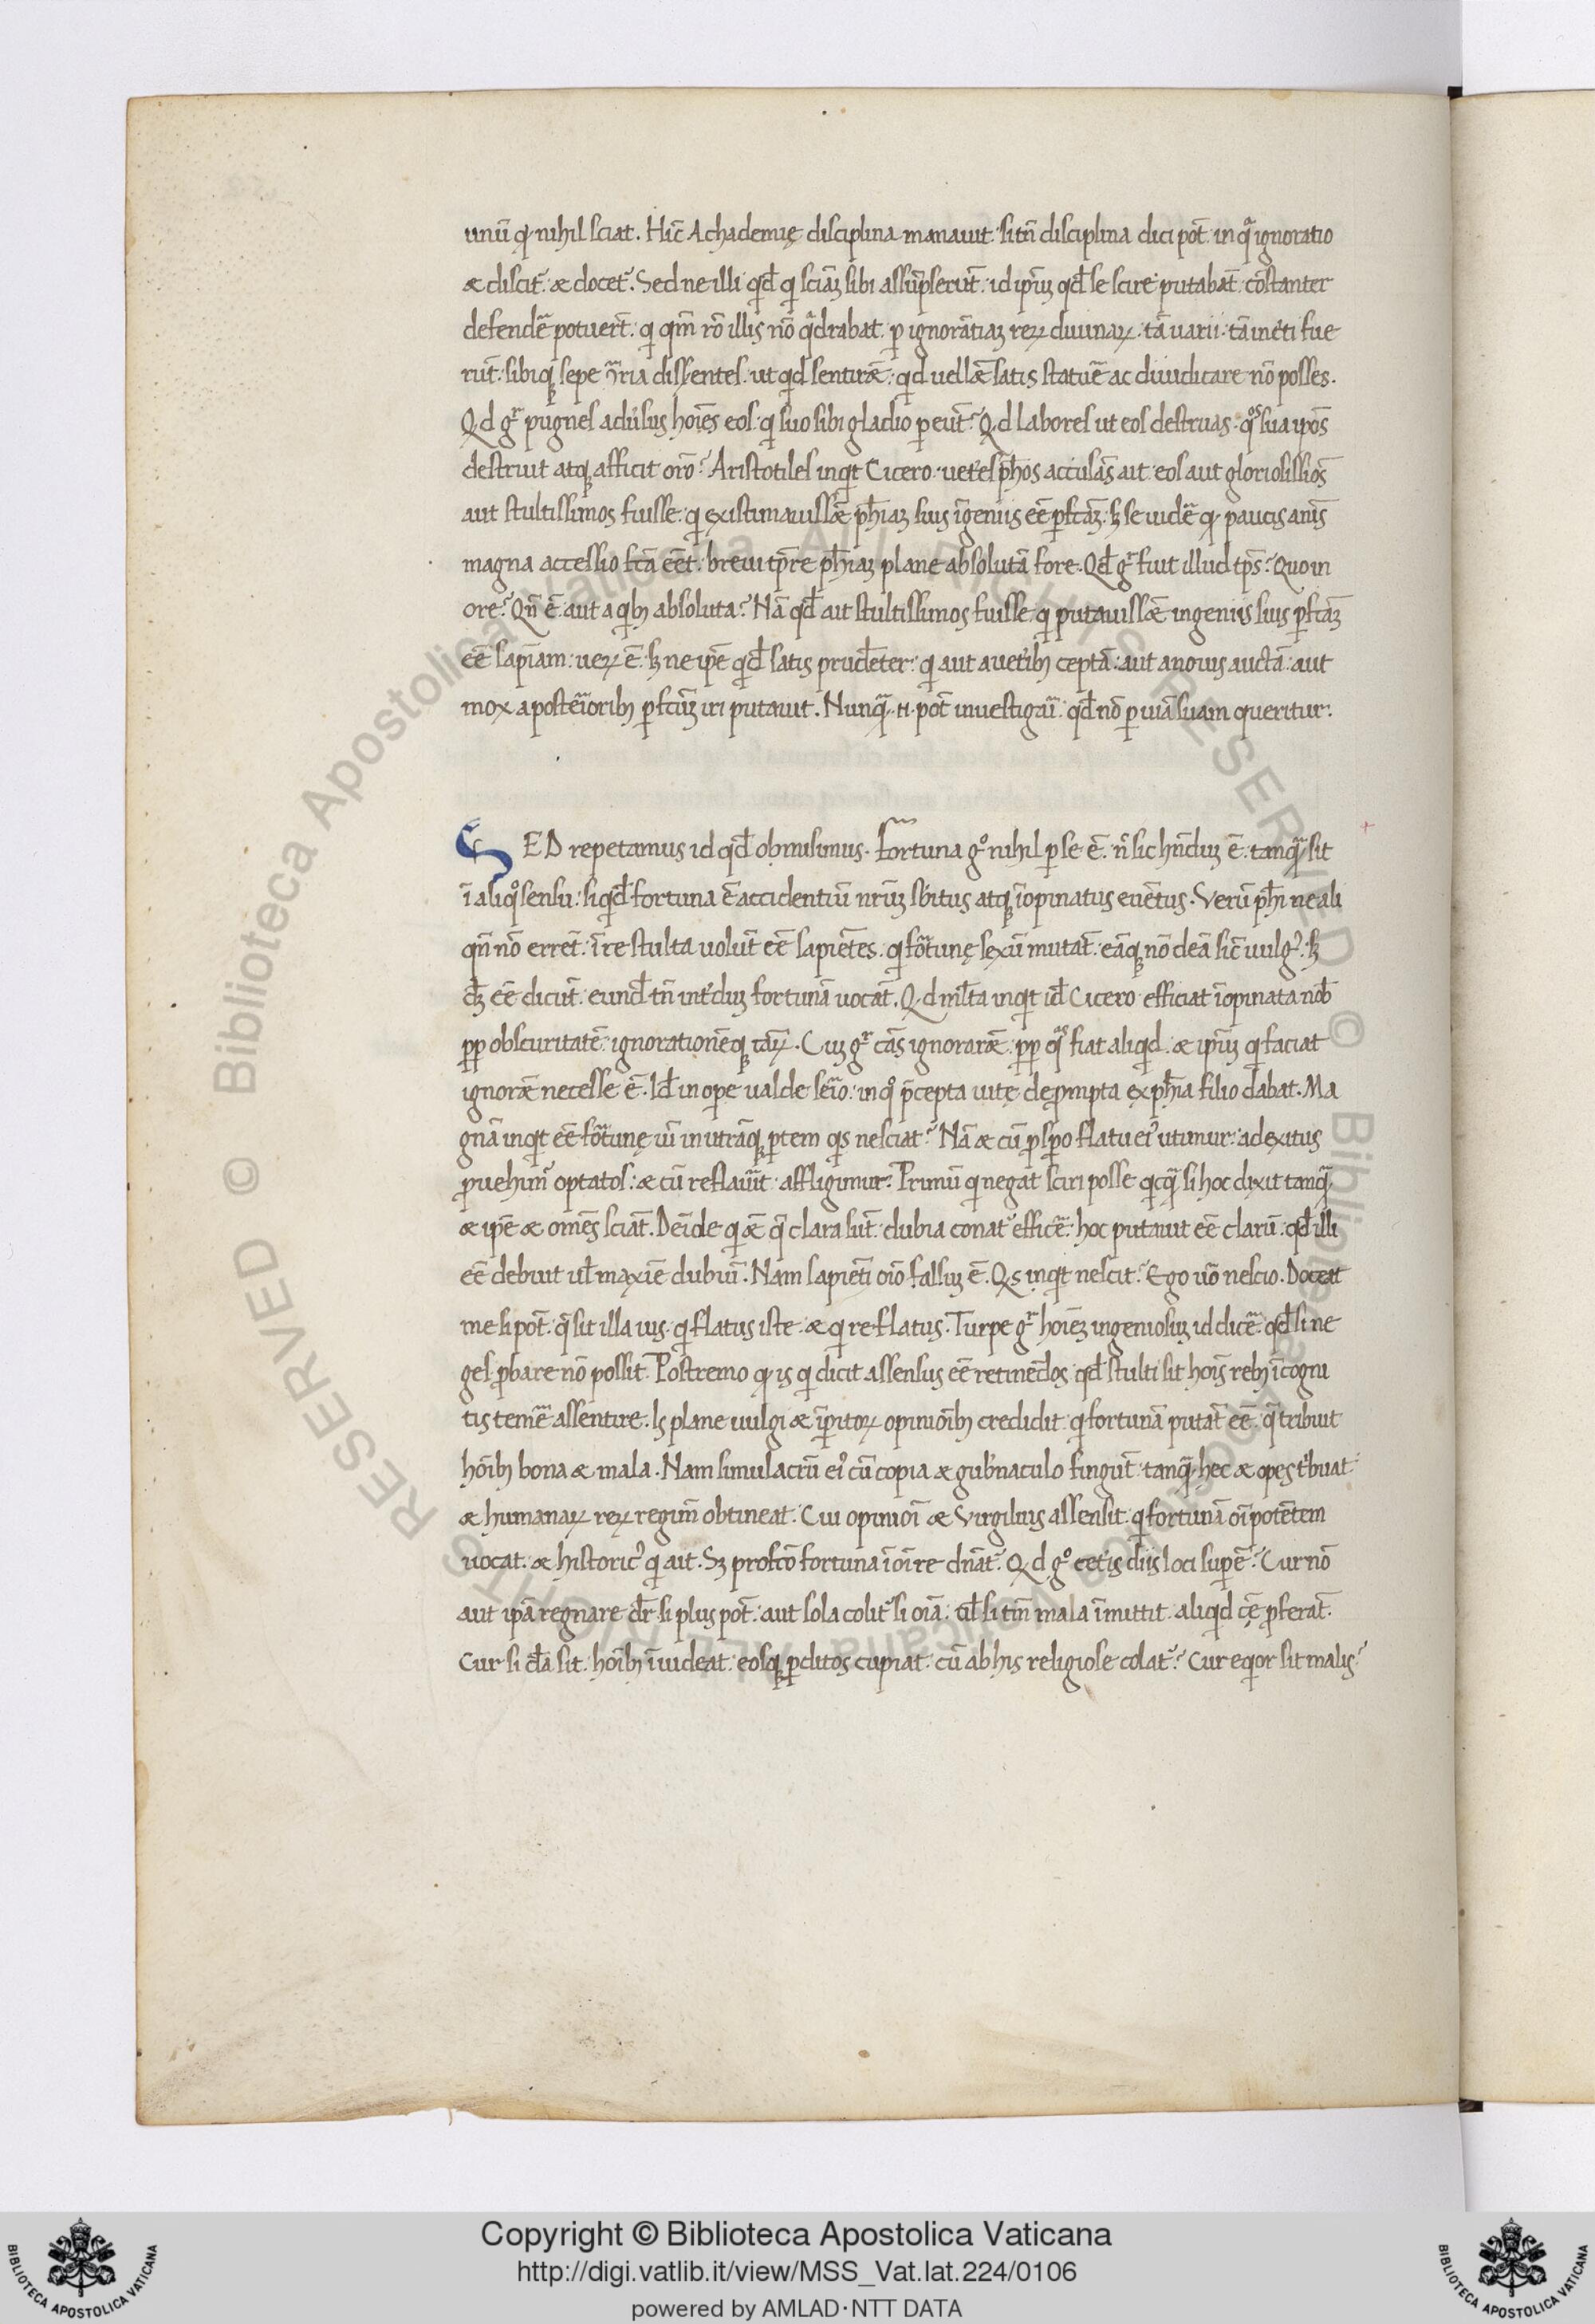 unū ꝙ nihil sciat. Hic̄ Achademię disciplina manauit. si tn̄ disciplina dici pōt. in qͣ ignoratio
& discit᷑. & docet᷑. Sed ne illi qd̄ q sciāꝫ sibi assūpserūt. id ip̄ūꝫ qd̄ se scire putabāt. cōstanter
defendē potuer̄t. q qm̄ rō illis nō qͣdrabat. ꝑ ignorātiaꝫ reꝝ diuinaꝝ. tā uarii. tā incerti fue
rūt. sibiqꝫ sepe ꝯ̄ria dissentes. ut qd sentirēt. qd uellēt satis statuē ac diiudicare nō posses.
Qd gͦ pugnes aduersus hoīes eos. q suo sibi gladio ꝑeūt? Qd labores ut eos destruas. qͦs sua ip̄os
destruit atqꝫ afficit orō? Aristotiles inqt Cicero. ueteres ph̄os accusās ait. eos aut gloriosissīos
aut stultissimos fuisse. q existimauissēt ph̄iaꝫ suis īgeniis eē ꝑfctāꝫ. sꝫ se uidē ꝙ paucis anīs
magna accessio fcā eēt. breui tp̄re ph̄iaꝫ plane absolutā fore. Qd̄ gͦ fuit illud tp̄s? Quo in
ore? Qn̄ ē. aut a qbꝫ absoluta? Nā qd̄ ait stultissimos fuisse. q putauissēt ingeniis suis ꝑfctāꝫ
eē sapīam. ueꝝ ē. sꝫ ne ip̄e qd̄ satis prudēter. q aut a ueteribꝫ ceptā. aut a nouis auctā. aut
mox a posterioribꝫ ꝑfctāꝫ iri putauit. Nunqͣ. n. pōt inuestigari. qd̄ nō ꝑ uiā suam queritur.
SED repetamus id qd̄ obmisimus. Fortuna gͦ nihil ꝑ se ē. nͨ sic hn̄duꝫ ē. tanqͣ sit
ī aliqͦ sensu. siqd̄ fortuna ē accidentiū rerūꝫ s̄bitus atqꝫ īopinatus euētus. Verū ph̄i ne ali
qn̄ nō errēt. ī re stulta uolūt eē sapiētes. q fortunę sexū mutāt. eāqꝫ nō deā sic̄ uulgꝰ. sꝫ
dꝫ eē dicūt. eund̄ tn̄ interduꝫ fortunā uocāt. Qd ml̄ta inqt id̄ Cicero efficiat īopinata nob̄
ꝓp obscuritatē. ignorationēqꝫ cāꝝ. Cuꝫ gͦ cās ignorarēt. ꝓp qͣs fiat aliqd. & ip̄ūꝫ q faciat
ignorēt necesse ē. Id̄ in oꝑe ualde serio. in qͦ p̄cepta uitę deꝓmpta ex ph̄ia filio dabat. Ma
gnā inqt eē fortunę uī in utrāqꝫ ꝑtem qs nesciat? Nā & cū ꝓspo flatu eiꝰ utimur. ad exitus
ꝓuehimr̄ optatos. & cū reflauīt affligimur. Primū q negat sciri posse qcqͣ. si hoc dixit tanqͣ.
& ip̄e & omēs sciāt. Deīde q & q̄ clara sūt. dubia conat᷑ efficē. hoc putauit eē clarū. qd̄ illi
eē debuit ul̄ maxīe dubiū. Nam sapiēti oīo falsuꝫ ē. Qs inqt nescit? Ego uō nescio. Doceat
me si pōt. q̄ sit illa uis. q flatus iste. & q reflatus. Turpe gͦ hoīeꝫ ingeniosuꝫ id dicē. qd̄ si ne
ges ꝓbare nō possit. Postremo ꝙ is q dicit assensus eē retinēdos. qd̄ stulti sit hoīs rebꝫ īcogni
tis temē assentire. Is plane uulgi & īꝑitoꝝ opinioībꝫ credidit. q fortunā putāt eē. q̄ tribuit
hoībꝫ bona & mala. Nam simulacrū eiꝰ cū copia & gubernaculo fingūt. tanqͣ hec & opes tribuat
& humanaꝝ reꝝ regim̄ obtineat. Cui opinioī & Virgilius assensit. q fortunā oīpotētem
uocat. & historicꝰ q ait. Sꝫ profco fortuna ī oī re dnāt᷑. Qd gͦ ceteris diis loci suꝑē? Cur nō
aut ipā regnare dr̄ si plus pōt. aut sola colit᷑ si oīa. ul̄ si tm̄ mala īmittit. aliqd cę ꝓferāt.
Cur si dea sit. hoībꝫ īuideat. eosqꝫ ꝑditos cupiat. cū ab his religiose colat᷑? Cur eqor sit malis?
Copyright © Biblioteca Apostolica Vaticana
http://digi.vatlib.it/view/MSS_Vat.lat.224/0106
powered by AMLAD·NTT DATA